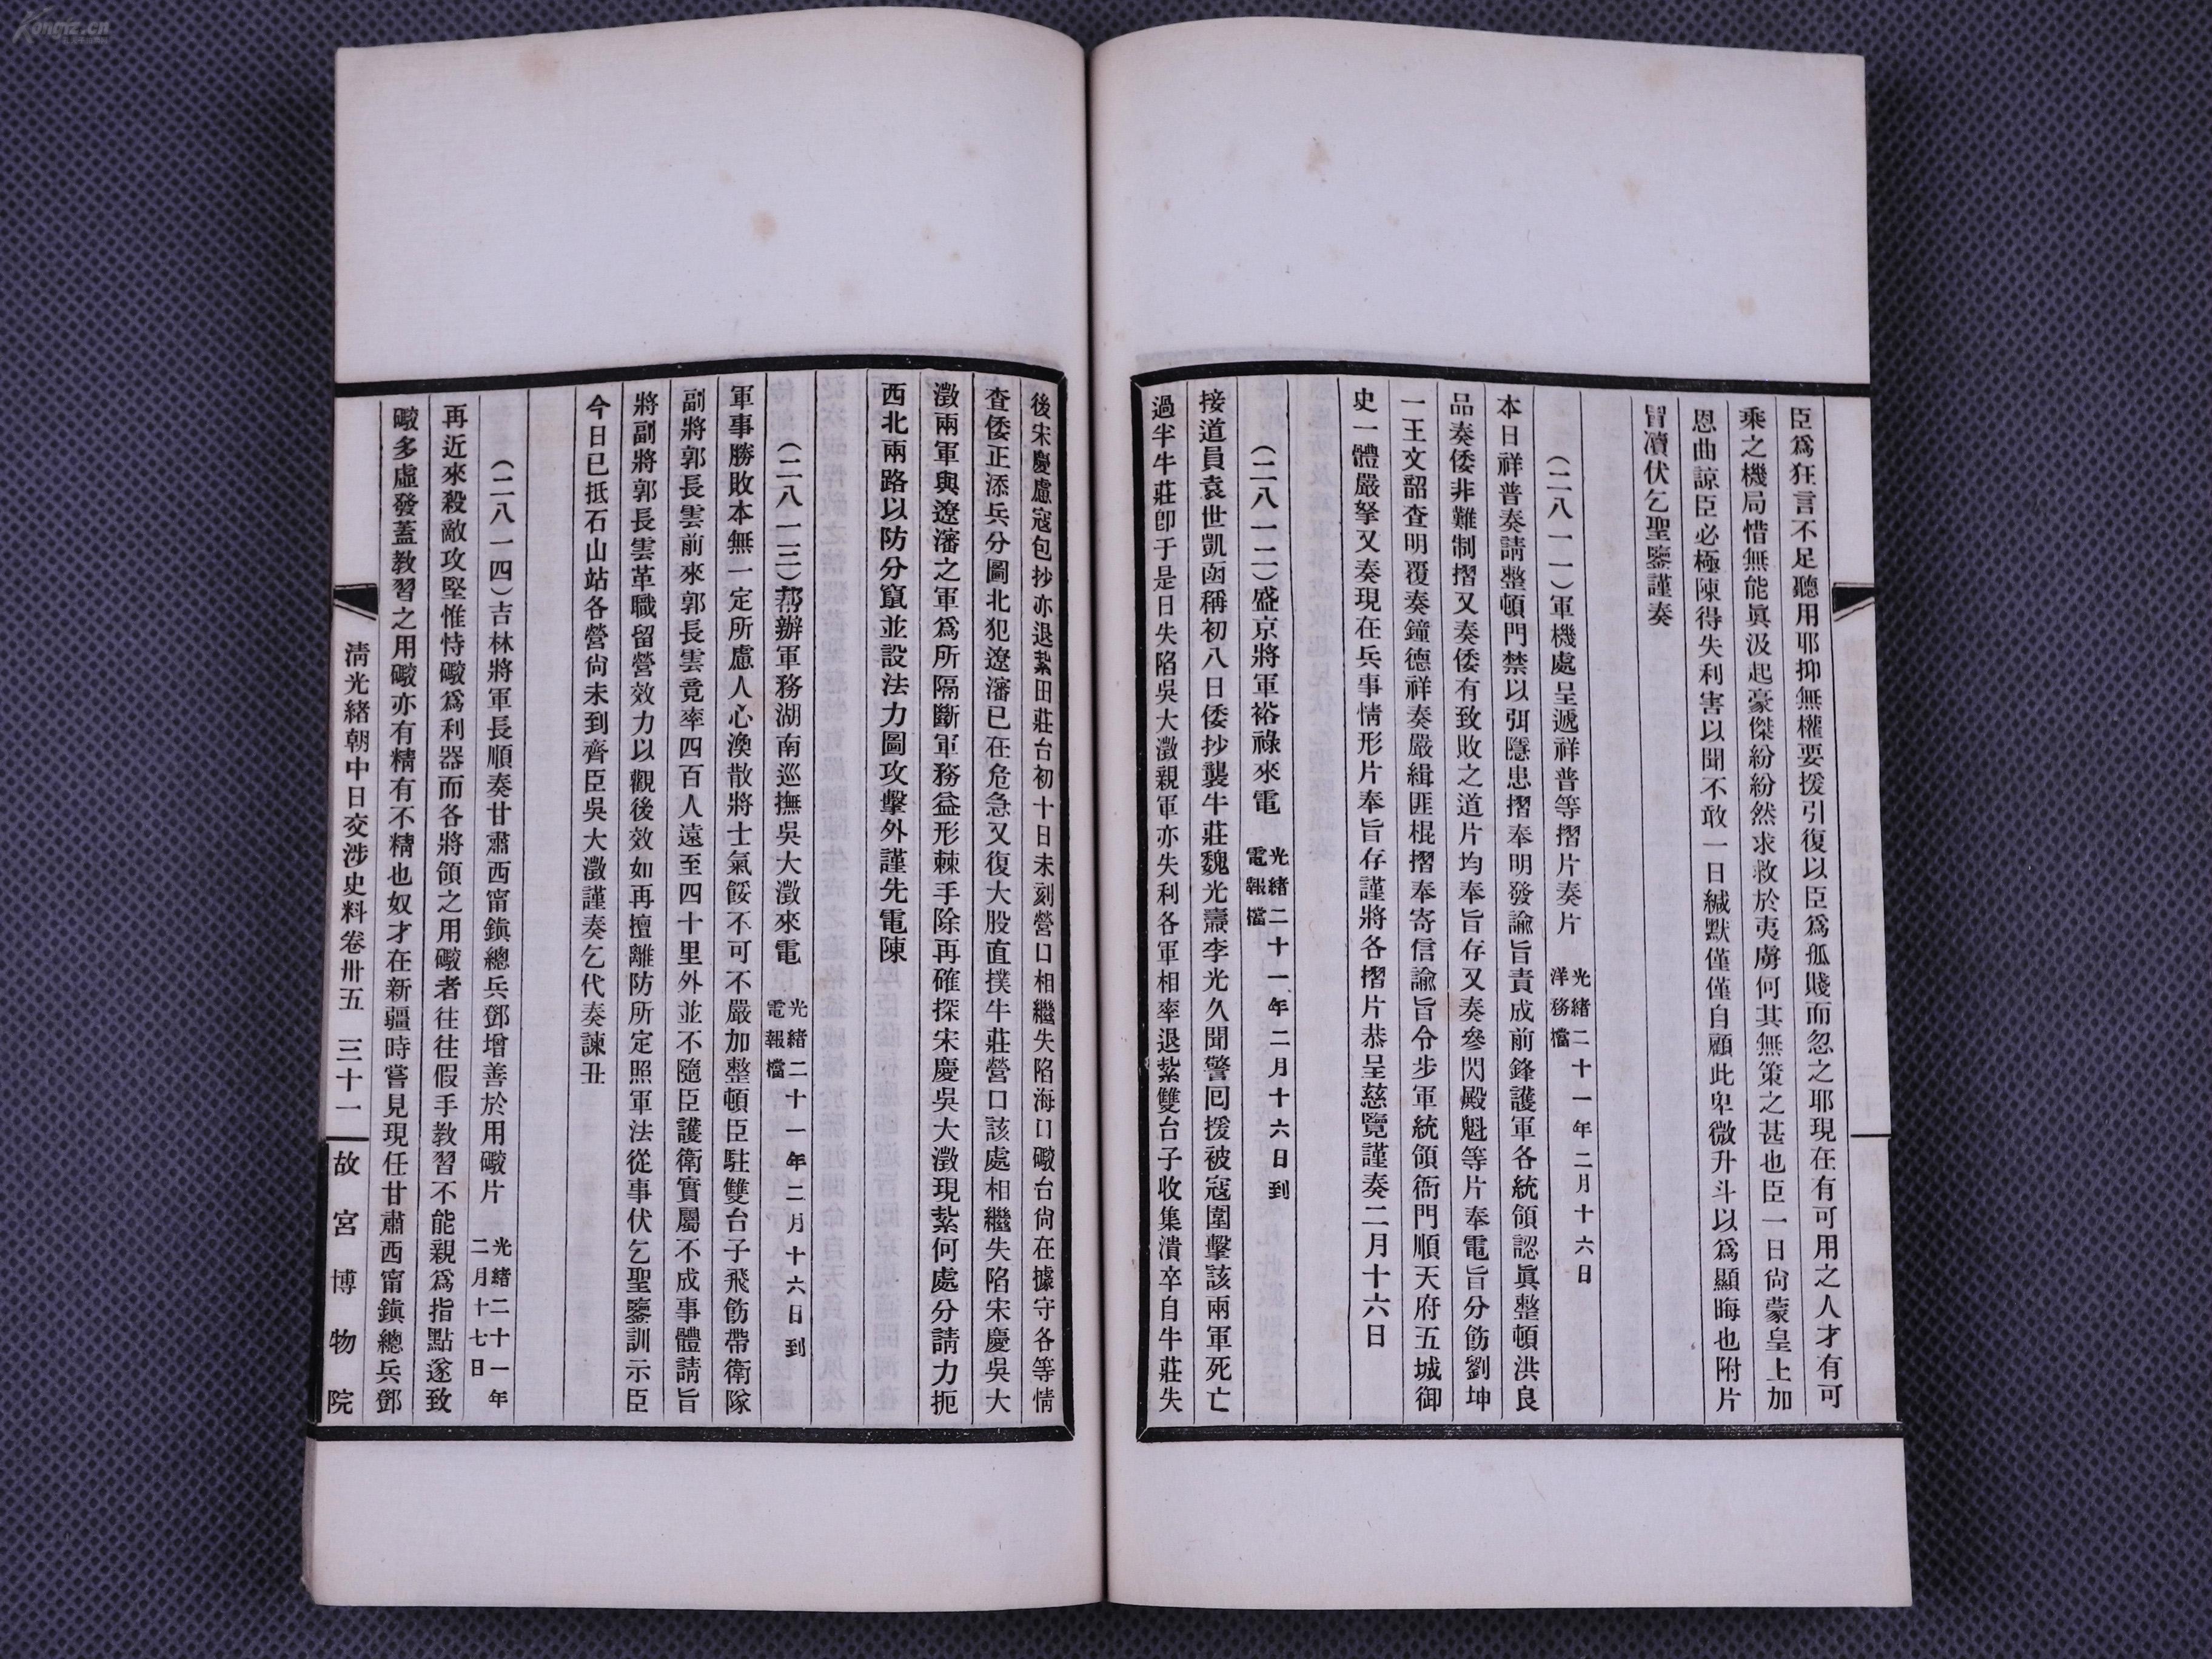 臣爲狂言不足聽用耶抑無權要援引復以臣爲孤賤而忽之耶現在有可用之人才有可
乘之機局惜無能眞汲起豪傑紛紛然求救於夷虜何其無策之甚也臣一日尙蒙皇上加
恩曲諒臣必極陳得失利害以聞不敢一日緘默僅僅自顧此卑微升斗以爲顯晦也附片
冒瀆伏乞聖鑒謹奏
(二八一一)軍機處呈遞祥普等摺片奏片 光緒二十一年二月十六日
洋務檔
本日祥普奏請整頓門禁以弭隱患摺奉明發諭旨責成前鋒護軍各統領認眞整頓洪良
品奏倭非難制摺又奏倭有致敗之道片均奉旨存又奏參閃殿魁等片奉電旨分飭劉坤
一王文韶查明覆奏鐘德祥奏嚴緝匪棍摺奉寄信諭旨令步軍統領衙門順天府五城御
史一體嚴拏又奏現在兵事情形片奉旨存謹將各摺片恭呈慈覽謹奏二月十六日
(二八一二)盛京將軍裕祿來電 光緒二十一年二月十六日到
電報檔
接道員袁世凱函稱初八日倭抄襲牛莊魏光燾李光久聞警回援被寇圍擊該兩軍死亡
過半牛莊卽于是日失陷吳大澂親軍亦失利各軍相率退紮雙台子收集潰卒自牛莊失
後宋慶慮寇包抄亦退紮田莊台初十日未刻營口相繼失陷海口礮台尙在據守各等情
查倭正添兵分圖北犯遼瀋已在危急又復大股直撲牛莊營口該處相繼失陷宋慶吳大
澂兩軍與遼瀋之軍爲所隔斷軍務益形棘手除再確探宋慶吳大澂現紮何處分請力扼
西北兩路以防分竄並設法力圖攻擊外謹先電陳
(二八一三)幫辦軍務湖南巡撫吳大澂來電 光緒二十一年二月十六日到
電報檔
軍事勝敗本無一定所慮人心渙散將士氣餒不可不嚴加整頓臣駐雙台子飛飭帶衛隊
副將郭長雲前來郭長雲竟率四百人遠至四十里外並不隨臣護衛實屬不成事體請旨
將副將郭長雲革職留營效力以觀後效如再擅離防所定照軍法從事伏乞聖鑒訓示臣
今日已抵石山站各營尙未到齊臣吳大澂謹奏乞代奏諫丑
(二八一四)吉林將軍長順奏甘肅西甯鎮總兵鄧增善於用礮片 光緒二十一年
二月十七日
再近來殺敵攻堅惟恃礮爲利器而各將領之用礮者往往假手教習不能親爲指點遂致
礮多虛發蓋教習之用礮亦有精有不精也奴才在新疆時嘗見現任甘肅西甯鎮總兵鄧
清光緒朝中日交涉史料卷卅五 三十一 故宮博物院
Kongfz.cn